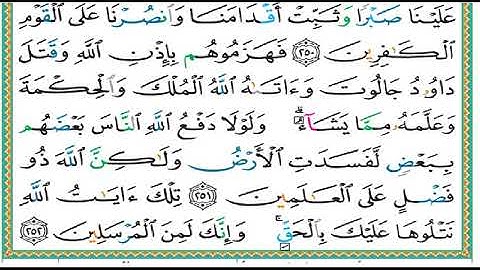 عَلَيْنَا صَبْرًا وَثَبِّتْ أَقْدَامَنَا وَٱنصُرْنَا عَلَى ٱلْقَوْمِ
ٱلْكَـٰفِرِينَ ٢٥٠ فَهَزَمُوهُم بِإِذْنِ ٱللَّهِ وَقَتَلَ
دَاوُۥدُ جَالُوتَ وَءَاتَىٰهُ ٱللَّهُ ٱلْمُلْكَ وَٱلْحِكْمَةَ
وَعَلَّمَهُۥ مِمَّا يَشَآءُ ۗ وَلَوْلَا دَفْعُ ٱللَّهِ ٱلنَّاسَ بَعْضَهُم
بِبَعْضٍ لَّفَسَدَتِ ٱلْأَرْضُ وَلَـٰكِنَّ ٱللَّهَ ذُو
فَضْلٍ عَلَى ٱلْعَـٰلَمِينَ ٢٥١ تِلْكَ ءَايَـٰتُ ٱللَّهِ
نَتْلُوهَا عَلَيْكَ بِٱلْحَقِّ ۚ وَإِنَّكَ لَمِنَ ٱلْمُرْسَلِينَ ٢٥٢